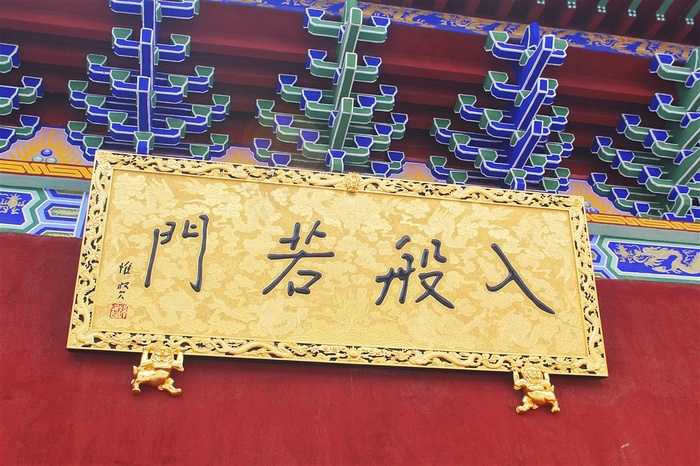 入般若門
惟贤